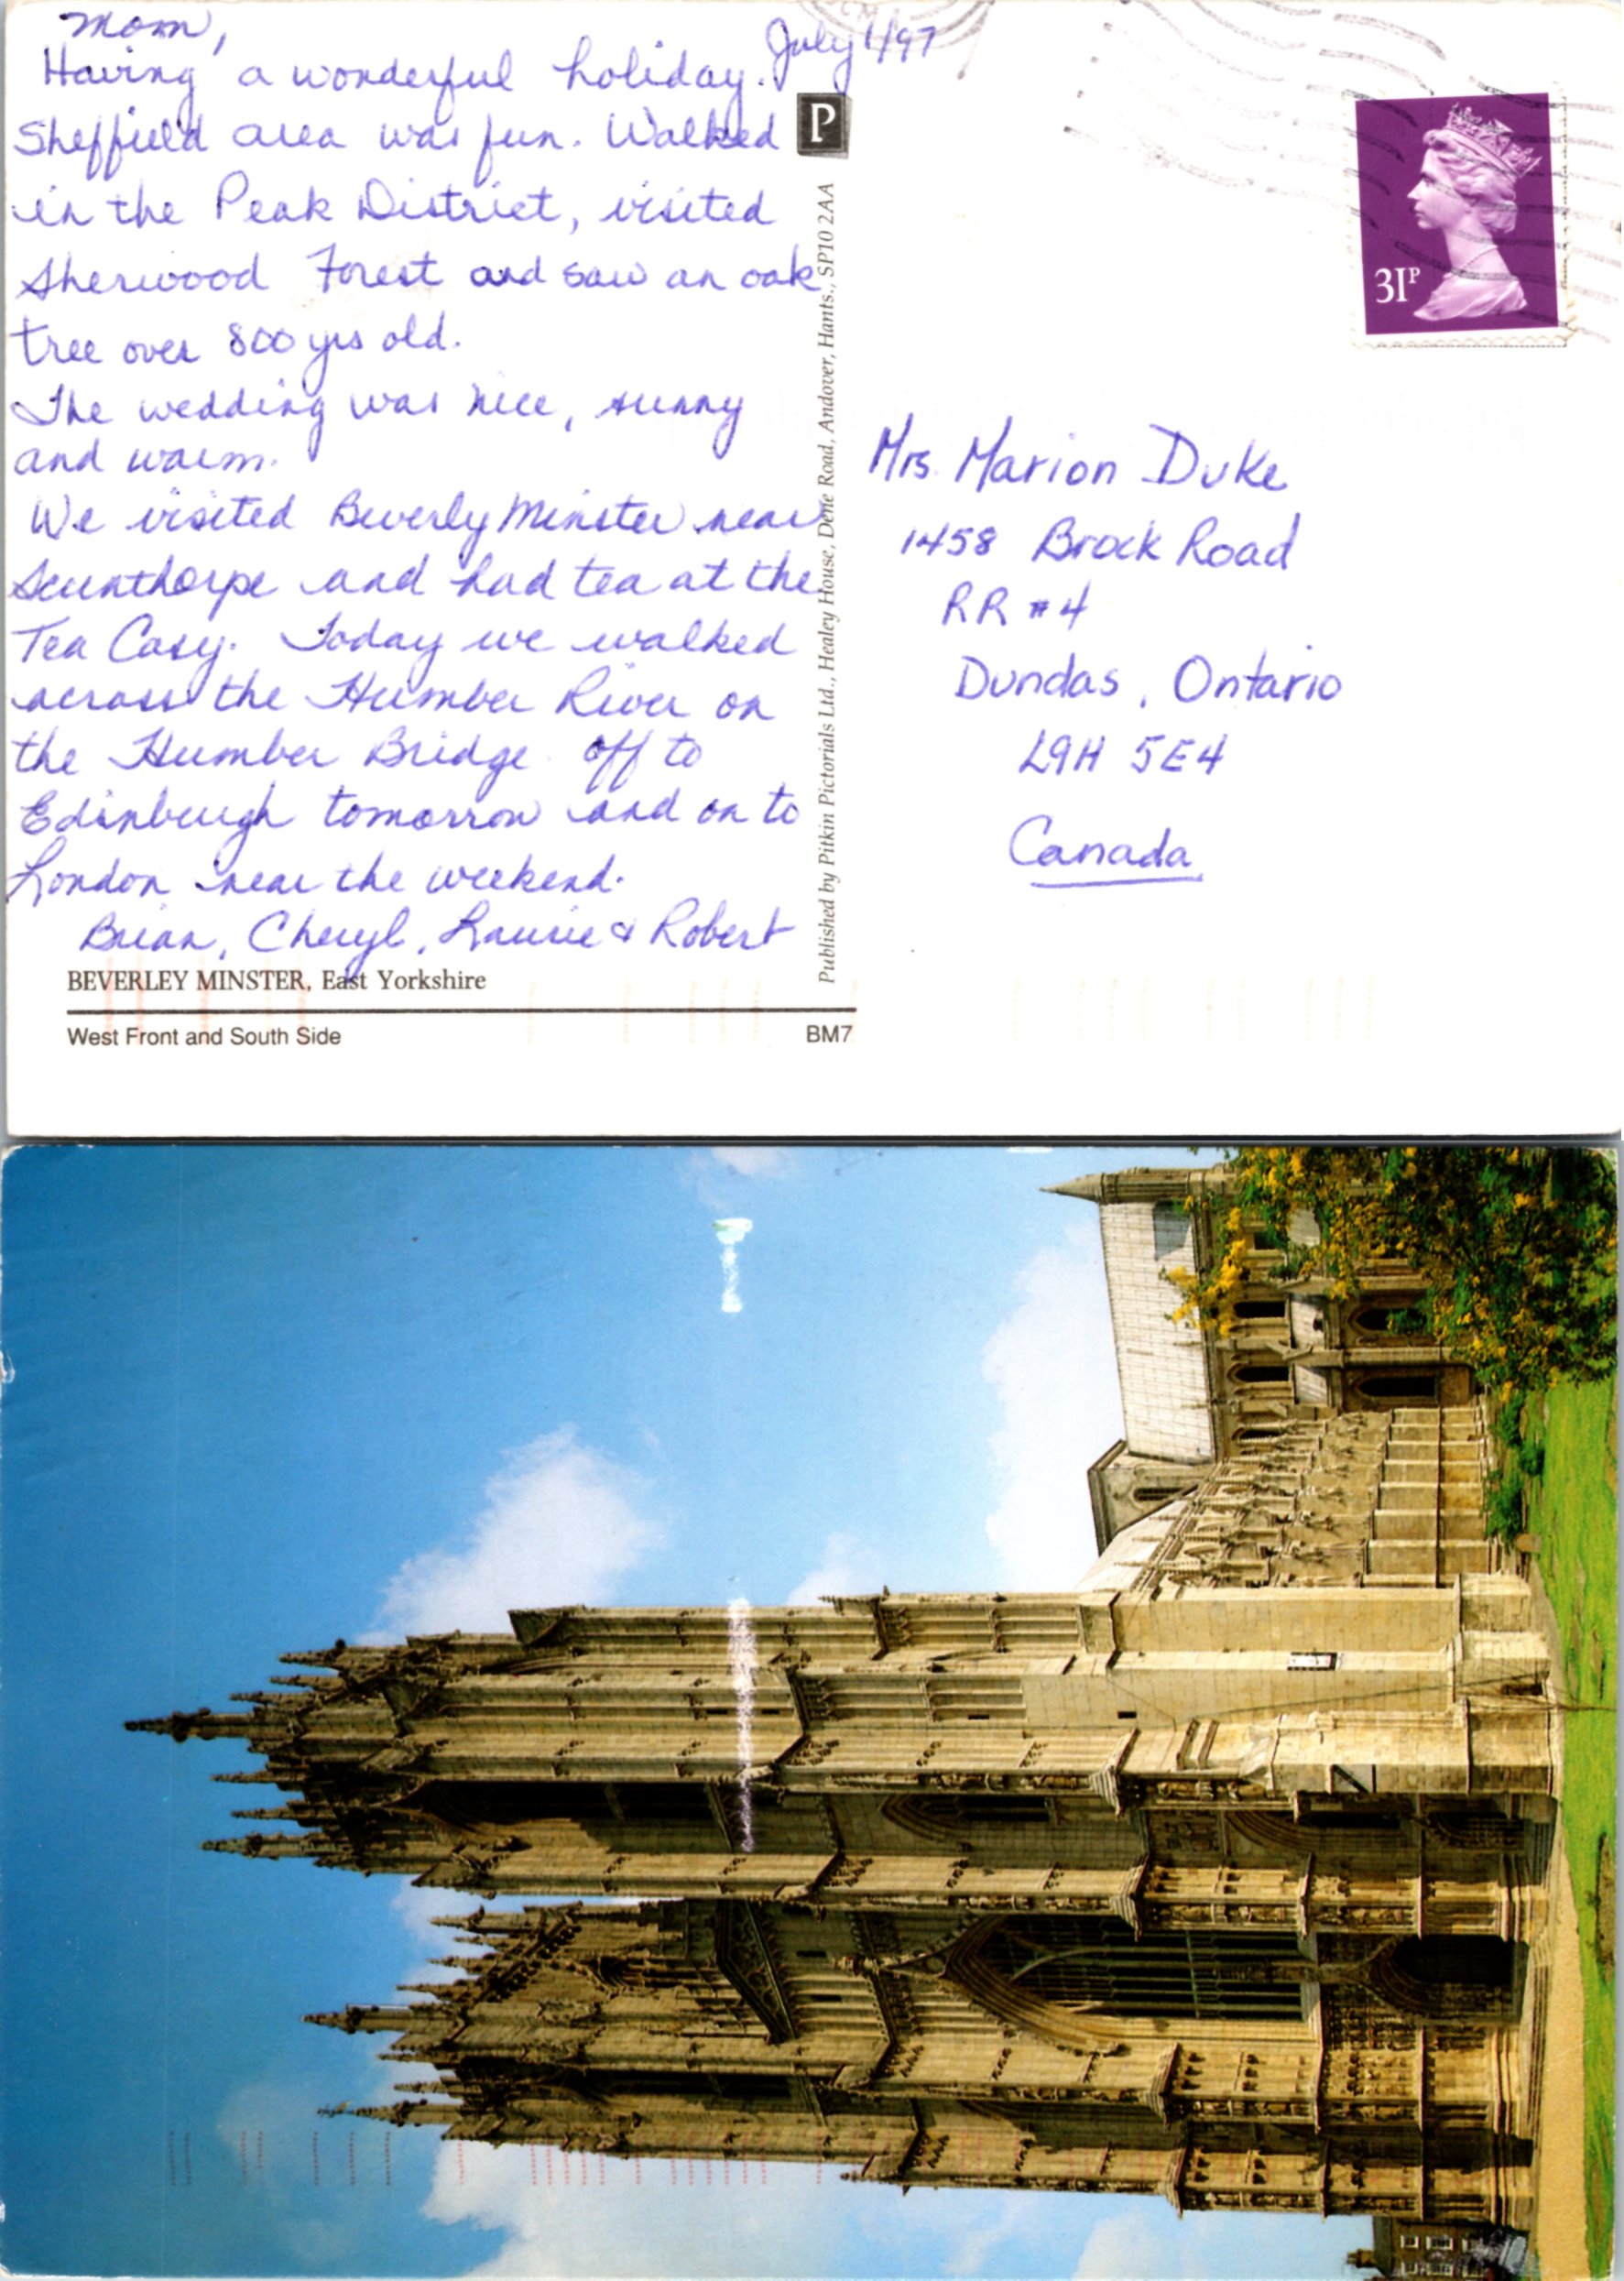 Mom,
July 1/97
Having a wonderful holiday.
Sheffield area was fun. Walked
in the Peak District, visited
Sherwood Forest and saw an oak
tree over 800 yrs old.
The wedding was nice, sunny
and warm.
We visited Beverly Minster near
Scunthorpe and had tea at the
Tea Cosy. Today we walked
across the Humber River on
the Humber Bridge. Off to
Edinburgh tomorrow and on to
London near the weekend.
Brian, Cheryl, Laurie & Robert
BEVERLEY MINSTER, East Yorkshire
West Front and South Side
BM7
P
Published by Pitkin Pictorials Ltd., Healey House, Dene Road, Andover, Hants., SP10 2AA
31P
Mrs. Marion Duke
1458 Brock Road
RR #4
Dundas, Ontario
L9H 5E4
Canada